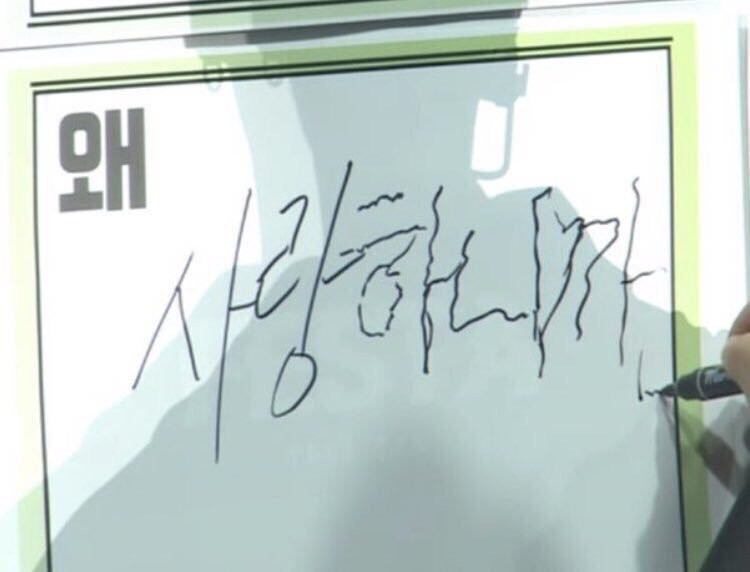 왜
사랑하니까